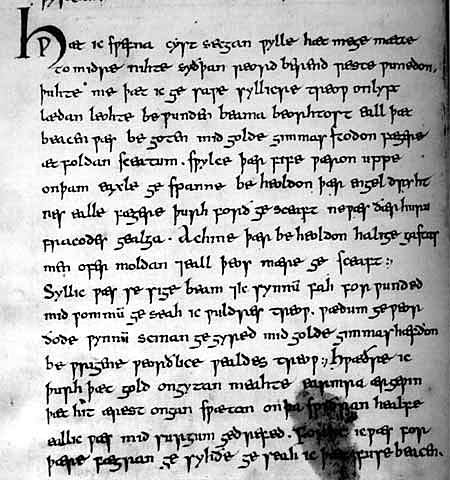 Hƿæt ic sƿefna cyst secgan ƿylle hæt mege mætte
to midre nihte syðþan reord berend reste ƿunedon.
þuhte me þæt ic ge saƿe syllicre treoƿ onlyft
lædan leohte be ƿunden beama beorhtost eall þæt
beacen ƿæs be goten mid golde gimmas stodon fægere
æt foldan sceatum. sƿylce þær fife ƿæron uppe
onþam eaxle ge spanne be heoldon þær engel dryht
nes ealle fægere þurh forð ge sceaft ne ƿæs ðær huru
fracodes gealga. Ac hine þær be heoldon halige gastas
men ofer moldan ⁊ eall þeos mære ge sceaft:,
Syllic ƿæs se sige beam ⁊ ic synnum fah for ƿunded
mid ƿommum ge seah ic ƿuldres treoƿ. ƿædum geƿeor
ðode ƿynnum scinan gegyred mid golde gimmas hæfdon
be ƿrigene ƿeorðlice ƿealdes treoƿ:, hƿæðre ic
þurh þæt gold ongytan meahte earmra ærgeƿin
þæt hit ærest ongan sƿætan onþa sƿiðran healfe
eall ic ƿæs mid surgum gedrefed. forht ic ƿæs for
þære fægran ge syhðe ge seah ic þæt fuse beacen.